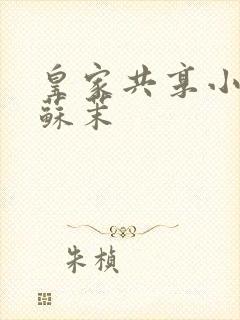 皇家共享小
蘇茉
朱楨